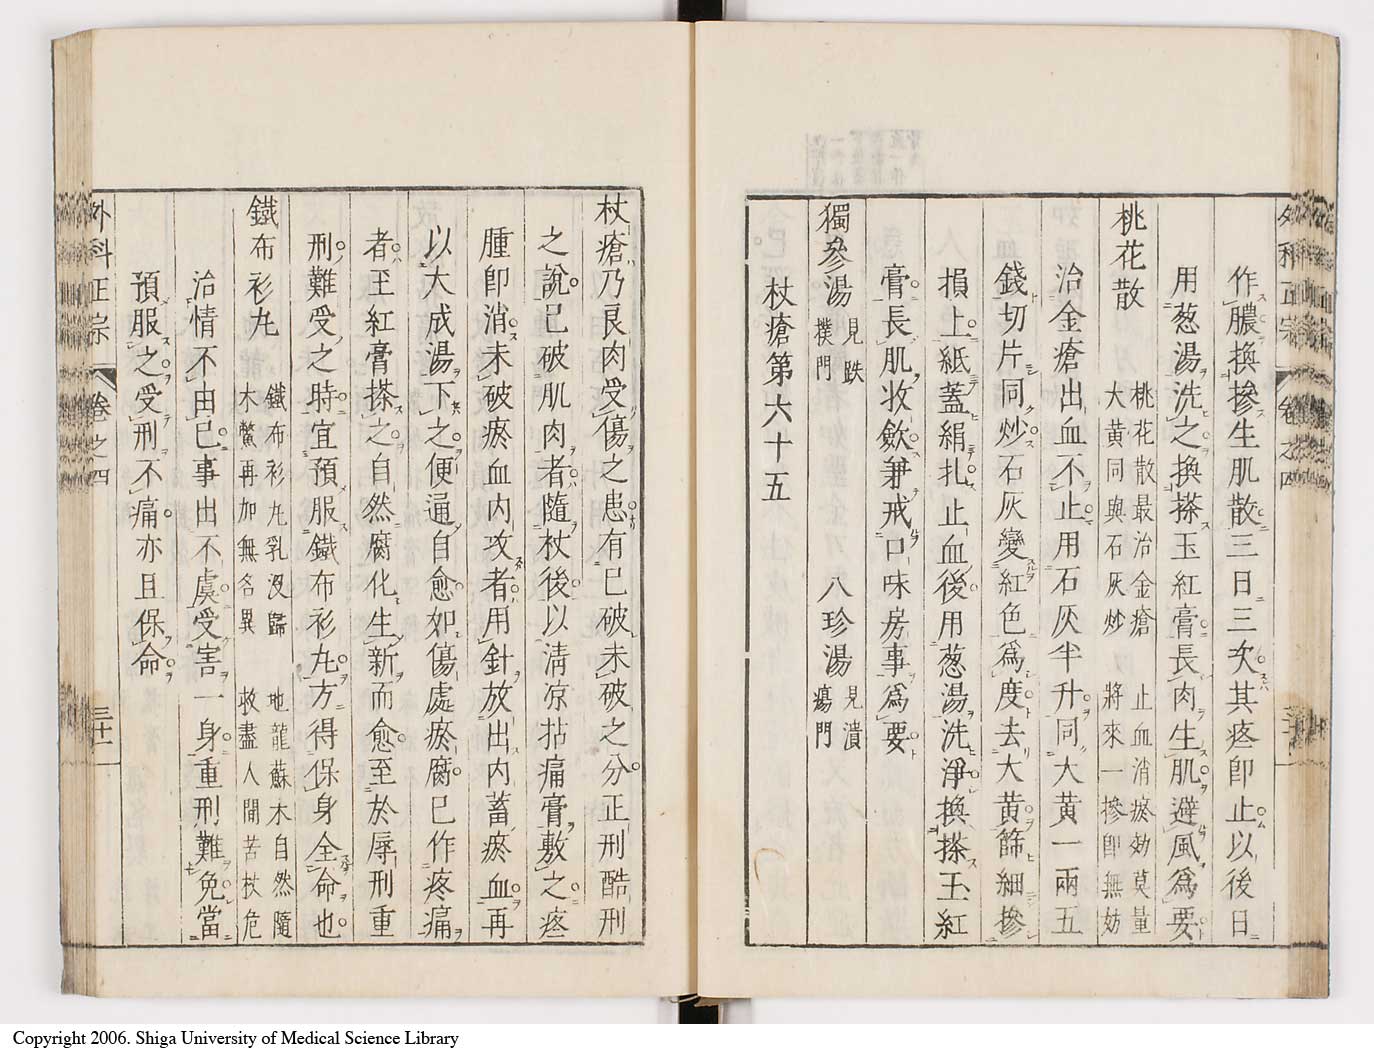 作膿換摻生肌散三日三次其疼卽止以後日
用葱湯洗之換搽玉紅膏長肉生肌避風爲要
桃花散 桃花散最治金瘡 止血消瘀効莫量
大黃同與石灰炒 將來一摻卽無妨
治金瘡出血不止用石灰半升同大黃一兩五
錢切片同炒石灰變紅色爲度去大黃篩細摻
損上紙蓋絹扎止血後用葱湯洗淨換搽玉紅
膏長肌收歛兼戒口味房事爲要
獨參湯 見跌
撲門
八珍湯 見潰
瘍門
杖瘡第六十五
外科正宗 卷之四
杖瘡乃良肉受傷之患有已破未破之分正刑酷刑
之說已破肌肉者隨杖後以淸凉拈痛膏敷之疼
腫卽消未破瘀血内攻者用針放出内蓄瘀血再
以大成湯下之便通自愈如傷處瘀腐已作疼痛
者至紅膏搽之自然腐化生新而愈至於辱刑重
刑難受之時宜預服鐵布衫丸方得保身全命也
鐵布衫丸 鐵布衫丸乳没歸 地龍蘇木自然隨
木鱉再加無名異 救盡人間苦杖危
治情不由己事出不虞受害一身重刑難免當
預服之受刑不痛亦且保命
外科正宗 卷之四 三十二
Copyright 2006. Shiga University of Medical Science Library